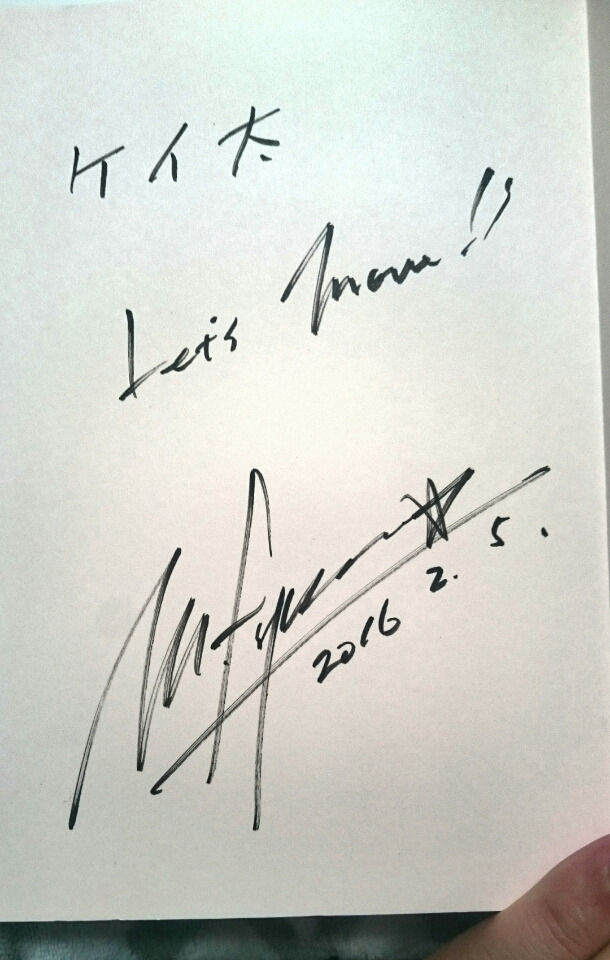 ケイ太
Let's move!!
2016 2. 5.